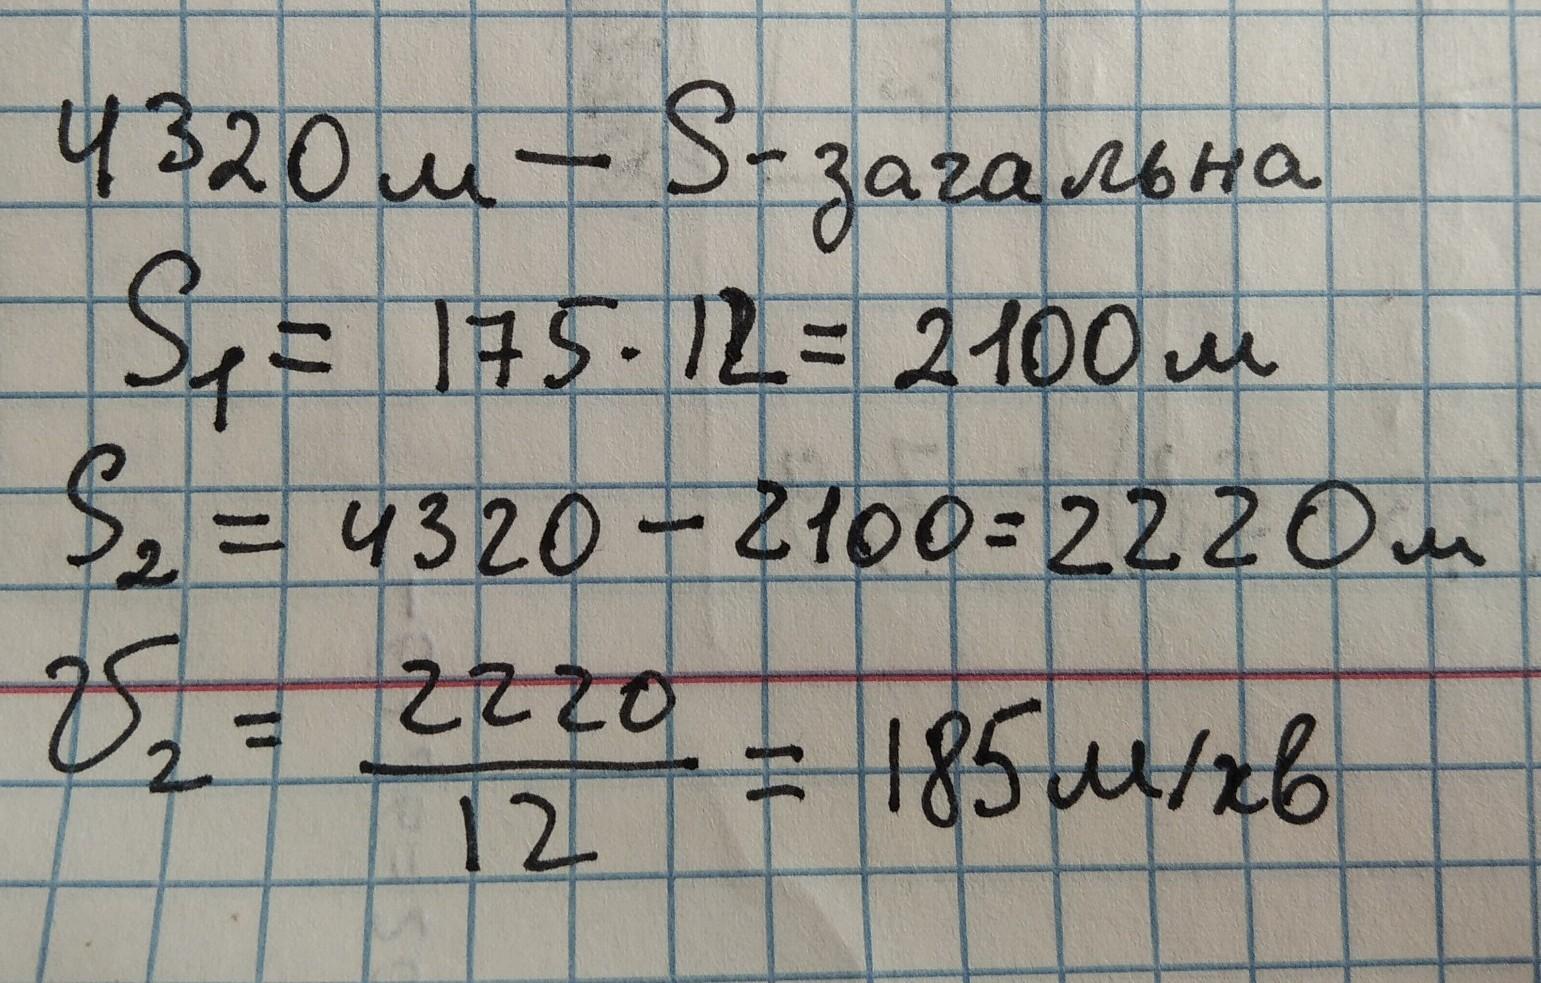 4320 м - S - загальна
S₁ = 175 · 12 = 2100 м
S₂ = 4320 - 2100 = 2220 м
v₂ = 2220/12 = 185 м/хв